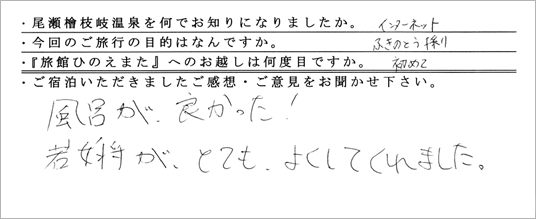 ・尾瀬檜枝岐温泉を何でお知りになりましたか。 インターネット
・今回のご旅行の目的はなんですか。 ふきのとう採り
・『旅館ひのえまた』へのお越しは何度目ですか。 初めて
・ご宿泊いただきましたご感想・ご意見をお聞かせ下さい。
風呂が、良かった！
若女将が、とても、よくしてくれました。